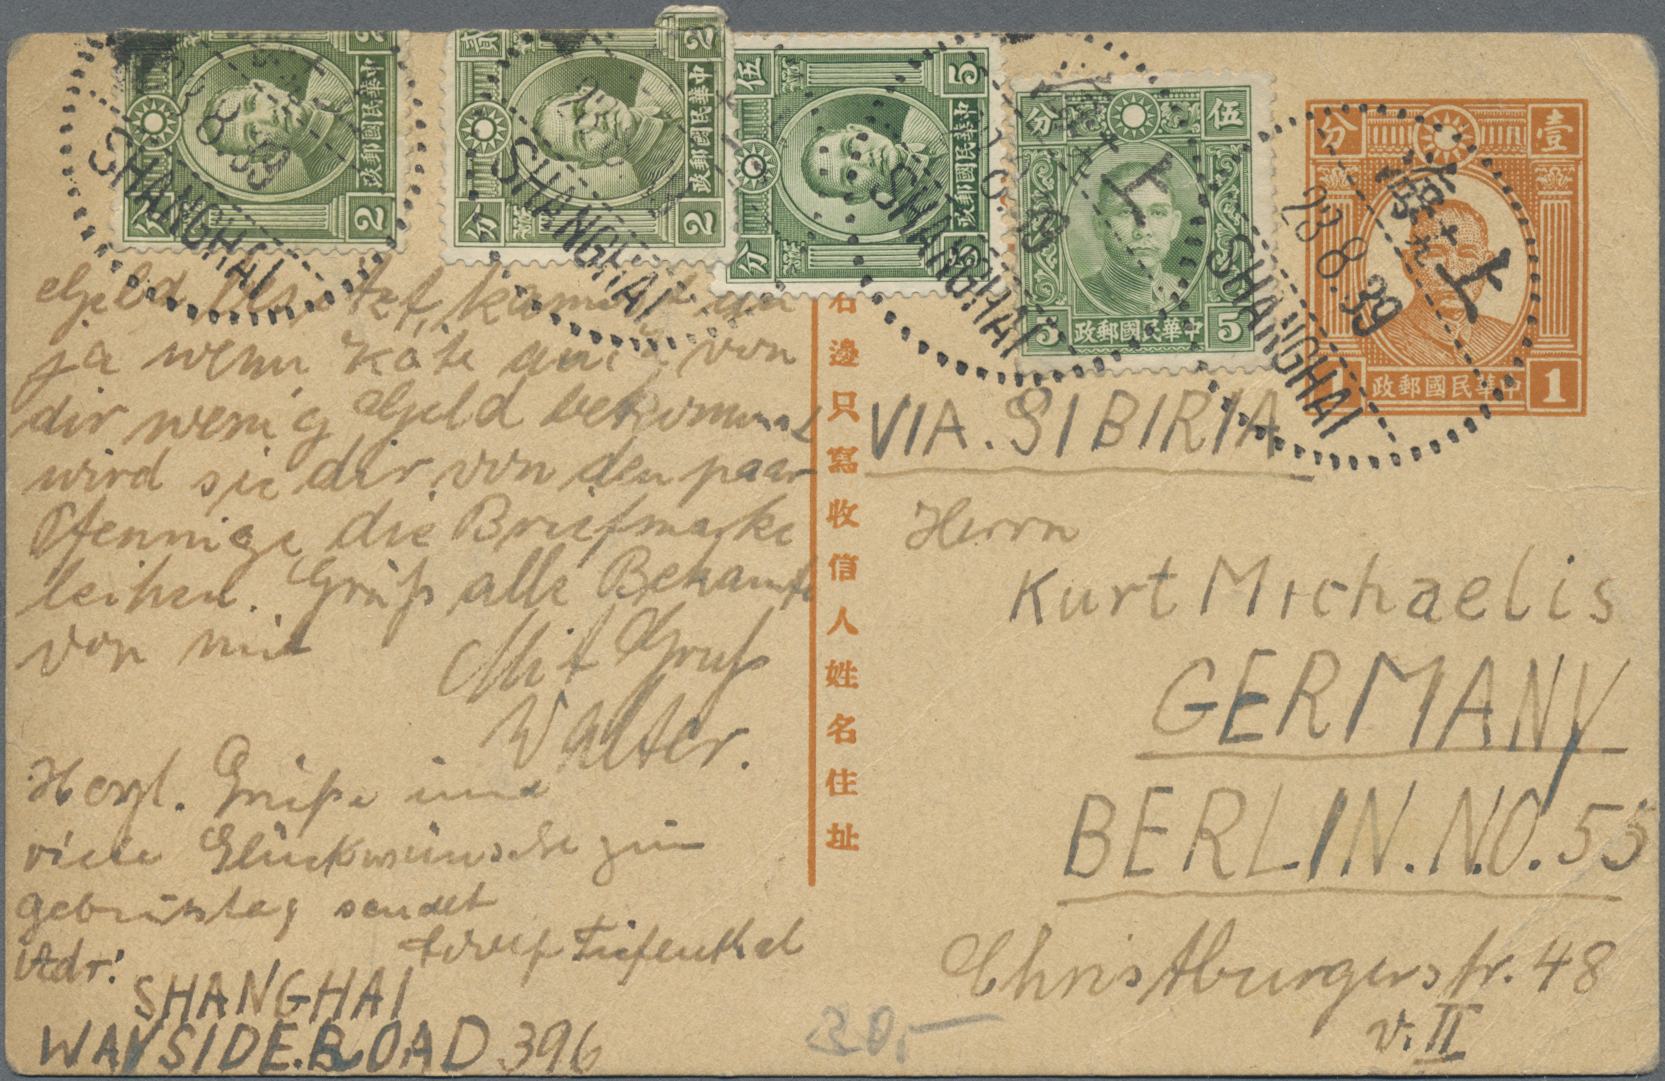 分 中華民國郵政 2
23.8.39
SHANGHAI
貳 2
分 中華民國郵政 2
SHANGHAI
伍 5
分 中華民國郵政 5
SHANGHAI
分 伍
上
5 中華民國郵政 5
分 壹
上海
23.8.39
SHANGHAI
1 中華民國郵政 1
Geld
ja wenn Käte von
dir wenig Geld bekommt
wird sie dir von den paar
Pfennige die Briefmarke
leihen. Grüß alle Bekannte
von mir
Mit Gruß
Walter.
Herzl. Grüße und
viele Glückwünsche zum
Geburtstag sendet
Tiefenthal
Adr:
SHANGHAI
WAYSIDE.ROAD 396
右邊只寫收信人姓名住址
VIA. SIBIRIA
Herrn
Kurt Michaelis
GERMANY
BERLIN.N.O.55
Christburgerstr. 48
v. II
30,-